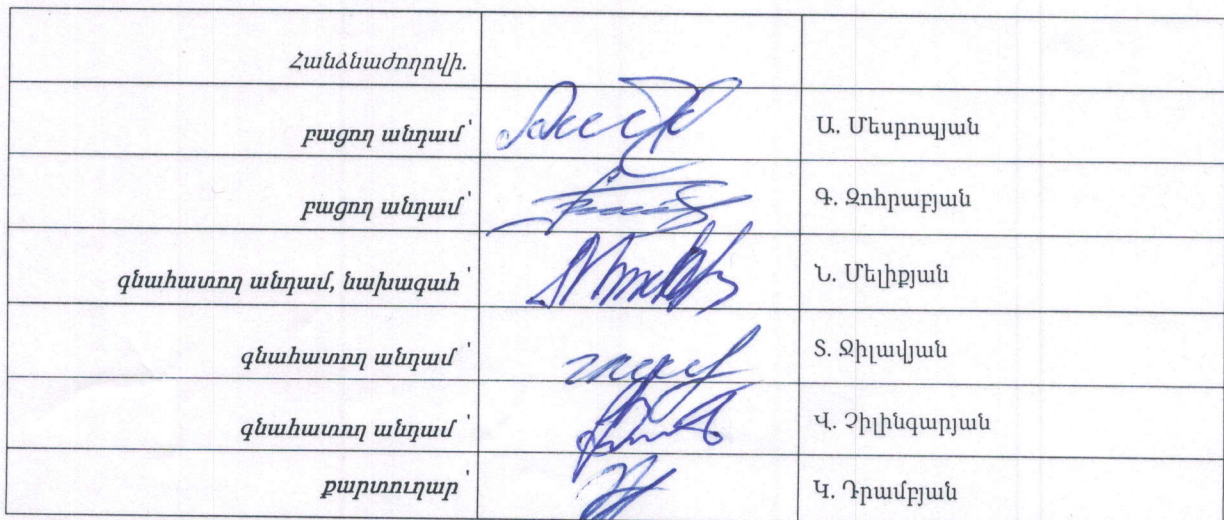 Հանձնաժողովի.
բացող անդամ՝ Ա. Մեսրոպյան
բացող անդամ՝ Գ. Զոհրաբյան
գնահատող անդամ, նախագահ՝ Ն. Մելիքյան
գնահատող անդամ ՝ Տ. Ջիլավյան
գնահատող անդամ ՝ Վ. Չիլինգարյան
քարտուղար՝ Կ. Դրամբյան